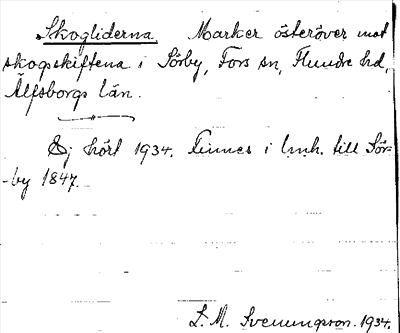 Skogliderna. Marker österöver mot
skogskiftena i Sörby, Fors sn, Flundre hd,
Älfsborgs län.
Ej hört 1934. Finnes i lmh. till Sör-
-by 1847.
L. M. Svenungsson. 1934.